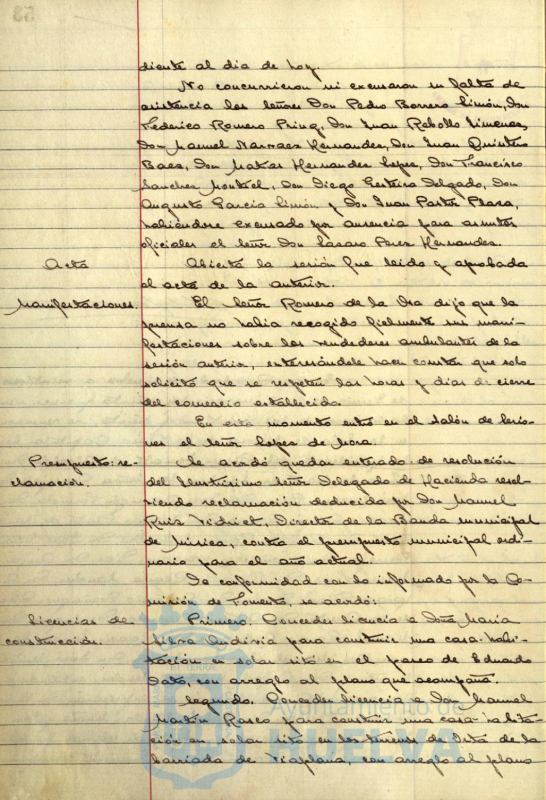 diente al dia de hoy.
No concurrieron ni excusaron su falta de
asistencia los señores Don Pedro Borrero Limón, Don
Federico Romero Don Juan Rebollo Jimenez,
Don Manuel Narvaez Hernandez, Don Juan Quintero
Baez, Don Matias Hernandez Lopez, Don Francisco
Sanchez Montiel, Don Diego Delgado, Don
Augusto Garcia Limón y Don Juan Pastor Plaza,
habiéndose excusado por ausencia para asuntos
oficiales el señor Don Lazaro Perez Hernandez.
Acta
Abierta la sesión fue leida y aprobada
el acta de la anterior.
Manifestaciones.
El señor Romero de la Osa dijo que la
prensa no habia recogido fielmente sus mani-
festaciones sobre los vendedores ambulantes de la
sesión anterior, interesándole hacer constar que solo
solicitó que se respeten las horas y dias de cierre
del comercio establecido.
En este momento entró en el salón de sesio-
nes el señor Lopez de Mora.
Presupuesto: re-
clamación.
Se acordó quedar enterado de resolución
del Ilustrisimo señor Delegado de Hacienda resol-
viendo reclamación deducida por Don Manuel
Ruiz Vidriet, Director de la Banda municipal
de Música, contra el presupuesto municipal ordi-
nario para el año actual.
De conformidad con lo informado por la Co-
misión de Fomento, se acordó:
Licencias de
construcción.
Primero. Conceder licencia a Doña Maria
Silva para construir una casa-habi-
tación en solar sito en el paseo de Eduardo
Dato, con arreglo al plano que acompaña.
Segundo. Conceder licencia a Don Manuel
Martin Rasco para construir una casa-habita-
ción en solar sito en los terrenos de la
barriada de Viaplana, con arreglo al plano
Ayuntamiento de
HUELVA